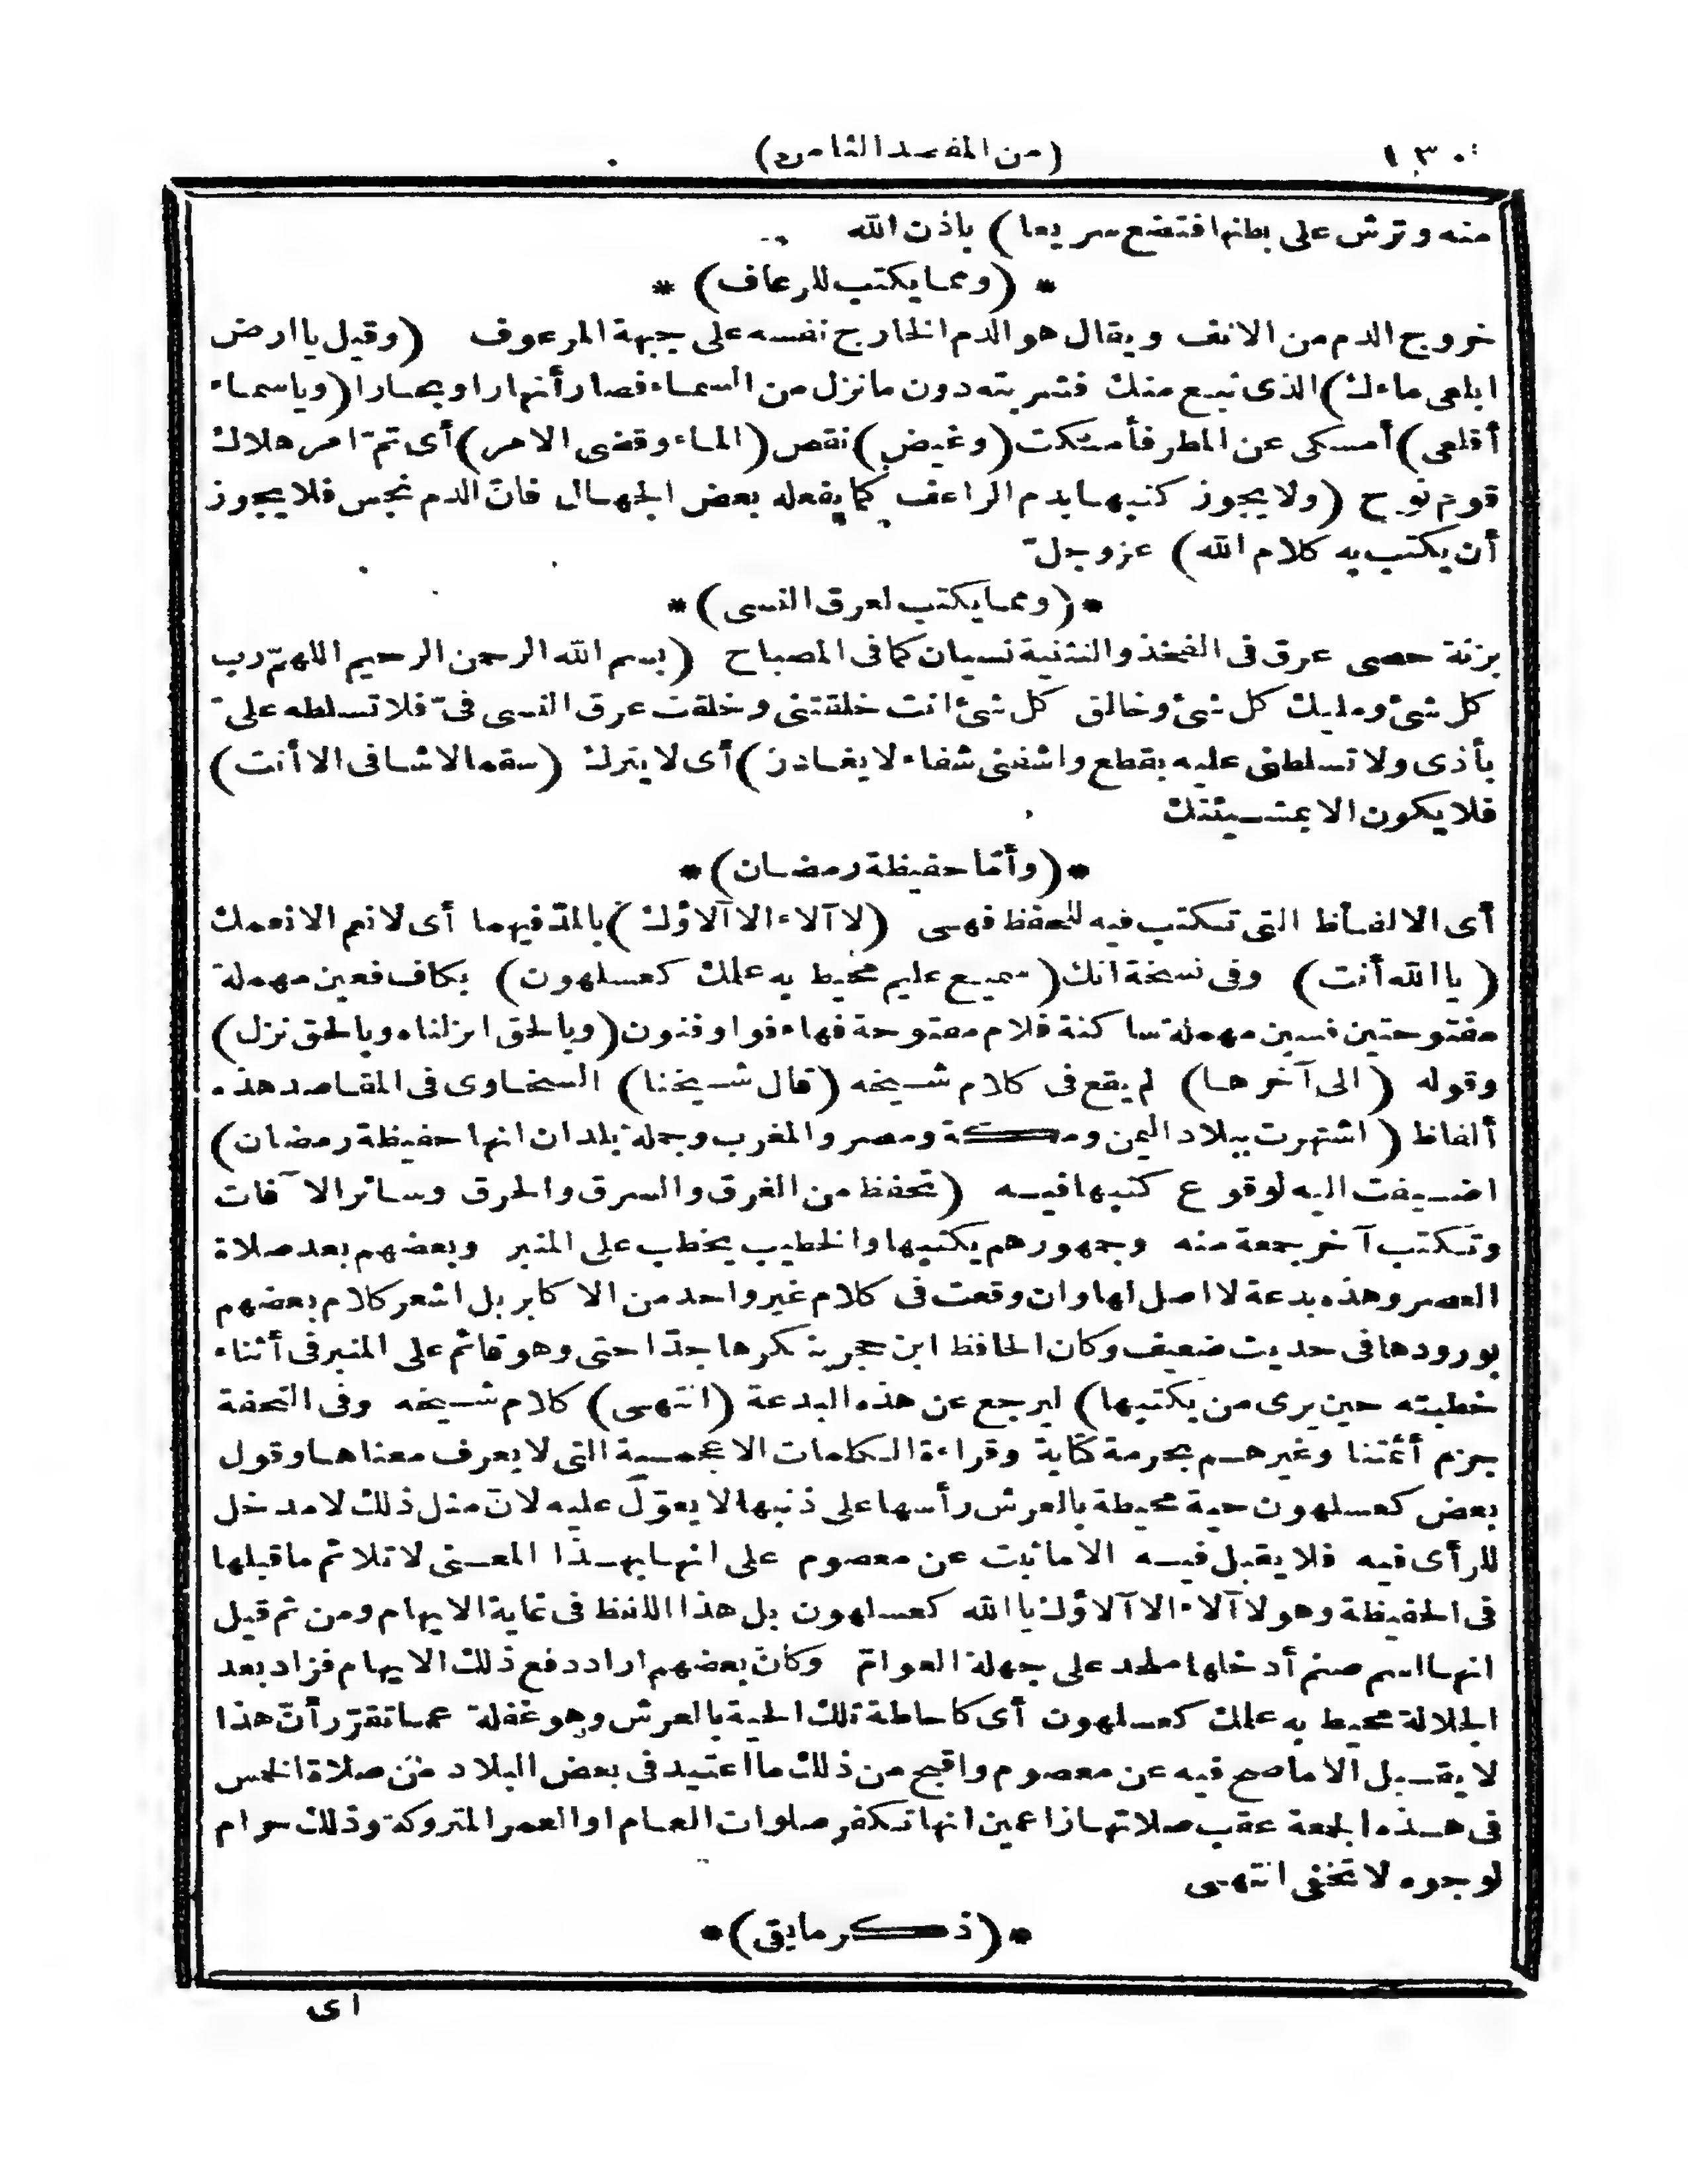 ١٣٠
(من المقصد الثامن)
منه وترش على بطنها فتضع سريعا) باذن الله
* (ومما يكتب للرعاف) *
خروج الدم من الانف ويقال هو الدم الخارج نفسه على جبهة المرعوف (وقيل يا ارض
ابلعى ماءك) الذى نبع منك فشربته دون ما نزل من السماء فصار أنهارا وبحارا (ويا سماء
أقلعى) أمسكى عن المطر فأمسكت (وغيض) نقص (الماء وقضى الامر) أى تمّ امر هلاك
قوم نوح (ولا يجوز كتبها بدم الراعف كما يفعله بعض الجهال فانّ الدم نجس فلا يجوز
أن يكتب به كلام الله) عز وجلّ
* (ومما يكتب لعرق النسى) *
بزنة حصى عرق فى الفخذ والتثنية نسيان كما فى المصباح (بسم الله الرحمن الرحيم اللهمّ رب
كل شئ ومليك كل شئ وخالق كل شئ انت خلقتنى وخلقت عرق النسى فىّ فلا تسلطه علىّ
بأذى ولا تسلطنى عليه بقطع واشفنى شفاء لا يغادر) أى لا يترك (سقما لا شافى الا أنت)
فلا يكون الا بمشيئتك
* (وأمّا حفيظة رمضان) *
أى الالفاظ التى تكتب فيه للحفظ فهى (لا آلاء الا آلاؤك) بالمدّ فيهما أى لا نعم الا نعمك
(يا الله أنت) وفى نسخة انك (سميع عليم محيط به علمك كعسلهون) بكاف فعين مهملة
مفتوحتين فسين مهملة ساكنة فلام مفتوحة فهاء فواو فنون (وبالحق انزلناه وبالحق نزل)
وقوله (الى آخرها) لم يقع فى كلام شيخه (قال شيخنا) السخاوى فى المقاصد هذه
ألفاظ (اشتهرت ببلاد اليمن ومكة ومصر والمغرب وجملة بلدان انها حفيظة رمضان)
اضيفت اليه لوقوع كتبها فيه (تحفظ من الغرق والسرق والحرق وسائر الآفات
وتكتب آخر جمعة منه وجمهورهم يكتبها والخطيب يخطب على المنبر وبعضهم بعد صلاة
العصر وهذه بدعة لا اصل لها وان وقعت فى كلام غير واحد من الاكابر بل اشعر كلام بعضهم
بورودها فى حديث ضعيف وكان الحافظ ابن حجر ينكرها جدّا حتى وهو قائم على المنبر فى أثناء
خطبته حين يرى من يكتبها) ليرجع عن هذه البدعة (انتهى) كلام شيخه وفى التحفة
جزم أئمتنا وغيرهم بحرمة كتابة وقراءة الكلمات الاعجمية التى لا يعرف معناها وقول
بعض كعسلهون حية محيطة بالعرش رأسها على ذنبها لا يعوّل عليه لانّ مثل ذلك لا مدخل
للرأى فيه فلا يقبل فيه الا ما ثبت عن معصوم على انها بهذا المعنى لا تلائم ما قبلها
فى الحفيظة وهو لا آلاء الا آلاؤك يا الله كعسلهون بل هذا اللفظ فى غاية الايهام ومن ثم قيل
انها اسم صنم أدخلها ملحد على جهلة العوامّ وكانّ بعضهم اراد دفع ذلك الايهام فزاد بعد
الجلالة محيط به علمك كعسلهون أى كاحاطة تلك الحية بالعرش وهو غفلة عما تقرّر أنّ هذا
لا يقبل الا ما صح فيه عن معصوم واقبح من ذلك ما اعتيد فى بعض البلاد من صلاة الخمس
فى هذه الجمعة عقب صلاتها زاعمين انها تكفر صلوات العام او العمر المتروكة وذلك حرام
لوجوه لا تخفى انتهى
* (ذكر ما يقى) *
اى